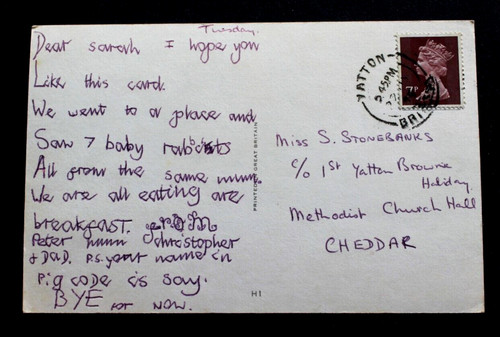 Tuesday.
Dear sarah I hope you
Like this card.
We went to a place and
Saw 7 baby rabbits
All from the same mum.
We are all eating are
breakfast. from
Peter mum christopher
+ DaD. P.S. your name in
Pig code is say.
BYE for NOW.
PRINTED IN GREAT BRITAIN
H1
YATTON
3.45PM
BRISTOL
Miss S. STONEBANKS
c/o 1st Yatton Brownie
Holiday
Methodist Church Hall
CHEDDAR